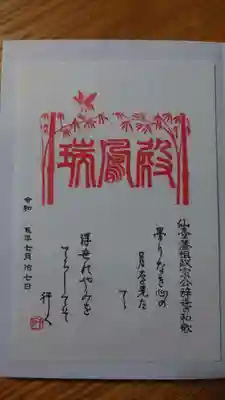 瑞鳳殿
仙臺藩祖政宗公辞世の和歌
曇りなき心の
月を先た
てゝ
浮世のやみを
てらしてそ
行く
令和 年七月拾七日